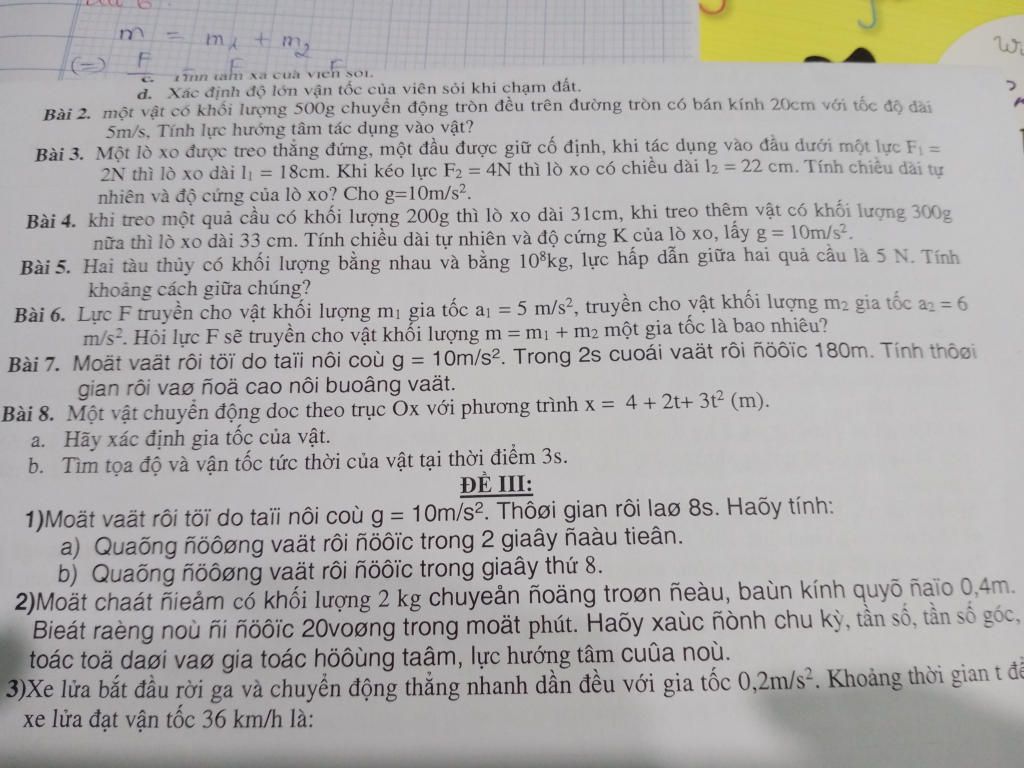 m = m₁ + m₂
(=) F F F
c. Tính tầm xa của viên sỏi.
d. Xác định độ lớn vận tốc của viên sỏi khi chạm đất.
Bài 2. một vật có khối lượng 500g chuyển động tròn đều trên đường tròn có bán kính 20cm với tốc độ dài
5m/s, Tính lực hướng tâm tác dụng vào vật?
Bài 3. Một lò xo được treo thẳng đứng, một đầu được giữ cố định, khi tác dụng vào đầu dưới một lực F₁ =
2N thì lò xo dài l₁ = 18cm. Khi kéo lực F₂ = 4N thì lò xo có chiều dài l₂ = 22 cm. Tính chiều dài tự
nhiên và độ cứng của lò xo? Cho g=10m/s².
Bài 4. khi treo một quả cầu có khối lượng 200g thì lò xo dài 31cm, khi treo thêm vật có khối lượng 300g
nữa thì lò xo dài 33 cm. Tính chiều dài tự nhiên và độ cứng K của lò xo, lấy g = 10m/s².
Bài 5. Hai tàu thủy có khối lượng bằng nhau và bằng 10⁸kg, lực hấp dẫn giữa hai quả cầu là 5 N. Tính
khoảng cách giữa chúng?
Bài 6. Lực F truyền cho vật khối lượng m₁ gia tốc a₁ = 5 m/s², truyền cho vật khối lượng m₂ gia tốc a₂ = 6
m/s². Hỏi lực F sẽ truyền cho vật khối lượng m = m₁ + m₂ một gia tốc là bao nhiêu?
Bài 7. Moät vaät rôi töï do taïi nôi coù g = 10m/s². Trong 2s cuoái vaät rôi ñöôïc 180m. Tính thôøi
gian rôi vaø ñoä cao nôi buoâng vaät.
Bài 8. Một vật chuyển động dọc theo trục Ox với phương trình x = 4 + 2t+ 3t² (m).
a. Hãy xác định gia tốc của vật.
b. Tìm tọa độ và vận tốc tức thời của vật tại thời điểm 3s.
ĐỀ III:
1)Moät vaät rôi töï do taïi nôi coù g = 10m/s². Thôøi gian rôi laø 8s. Haõy tính:
a) Quaõng ñöôøng vaät rôi ñöôïc trong 2 giaây ñaàu tieân.
b) Quaõng ñöôøng vaät rôi ñöôïc trong giaây thứ 8.
2)Moät chaát ñieåm có khối lượng 2 kg chuyeån ñoäng troøn ñeàu, baùn kính quyõ ñaïo 0,4m.
Bieát raèng noù ñi ñöôïc 20voøng trong moät phút. Haõy xaùc ñònh chu kỳ, tần số, tần số góc,
toác toä daøi vaø gia toác höôùng taâm, lực hướng tâm cuûa noù.
3)Xe lửa bắt đầu rời ga và chuyển động thẳng nhanh dần đều với gia tốc 0,2m/s². Khoảng thời gian t để
xe lửa đạt vận tốc 36 km/h là: